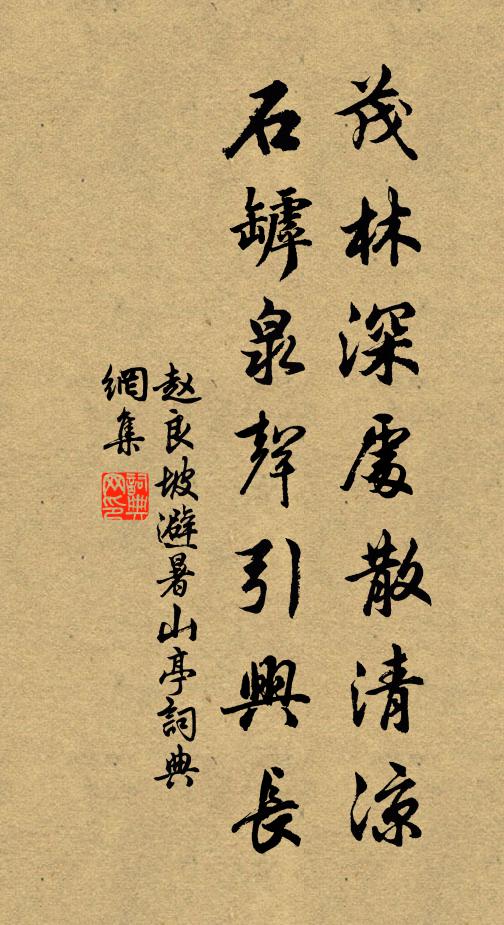 茂林深處散清涼
石罅泉聲引興長
赵良坡避暑山亭詞典
網集
詞典
网印